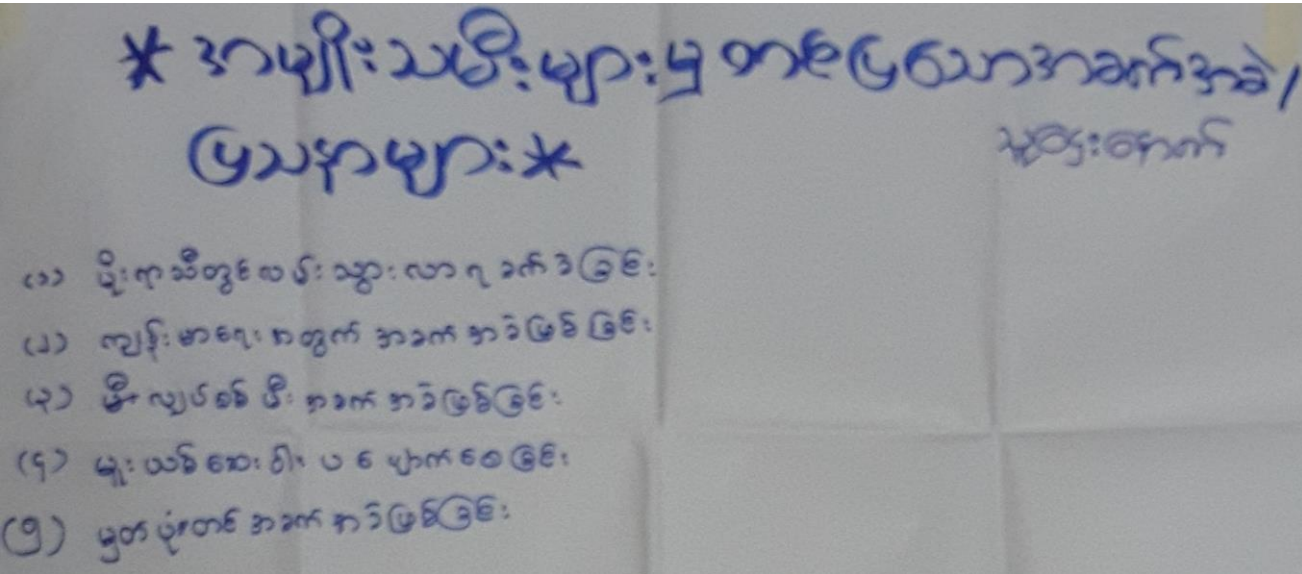 * အမျိုးသမီးများမှ တင်ပြသောအခက်အခဲ/
ပြသနာများ *
သူဌေးနောက်
(၁) မိုးရာသီတွင် လမ်းသွားလာရ ခက်ခဲခြင်း
(၂) ကျန်းမာရေးအတွက် အခက်အခဲဖြစ်ခြင်း
(၃) မီးလျှပ်စစ်မီး အခက်အခဲဖြစ်ခြင်း
(၄) မူးယစ်ဆေးဝါး ပပျောက်စေခြင်း
(၅) မှတ်ပုံတင် အခက်အခဲဖြစ်ခြင်း